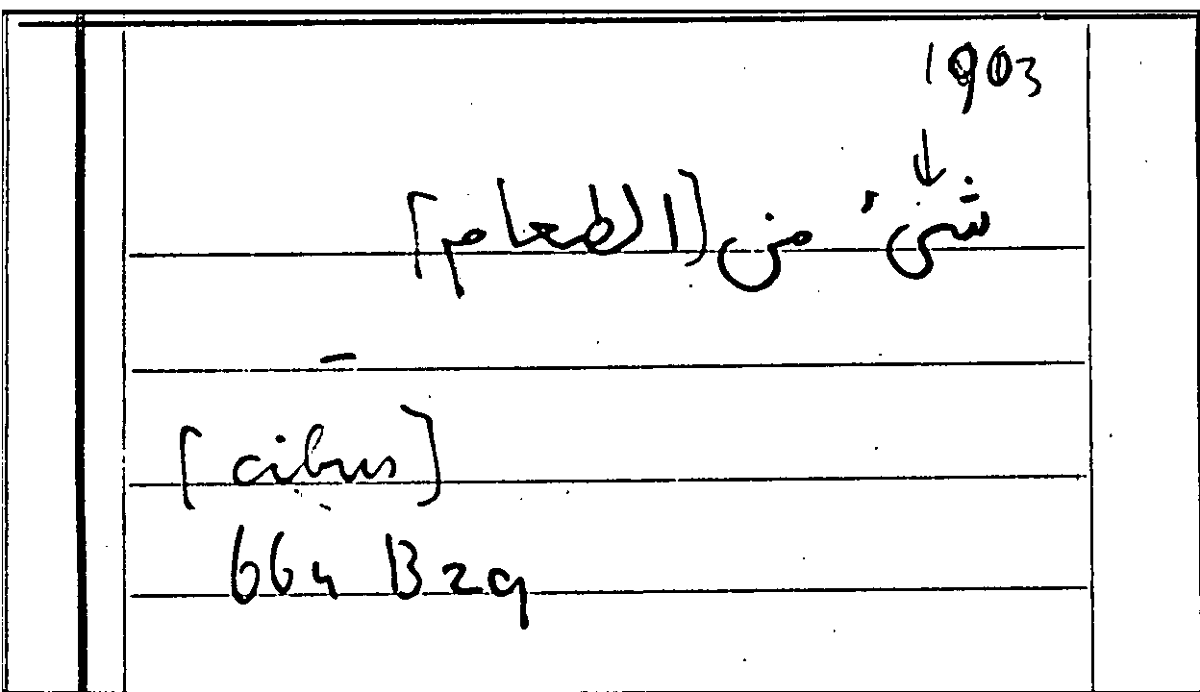 1903
↓
شىء من [الطعام]
–
[cibus]
664 B29